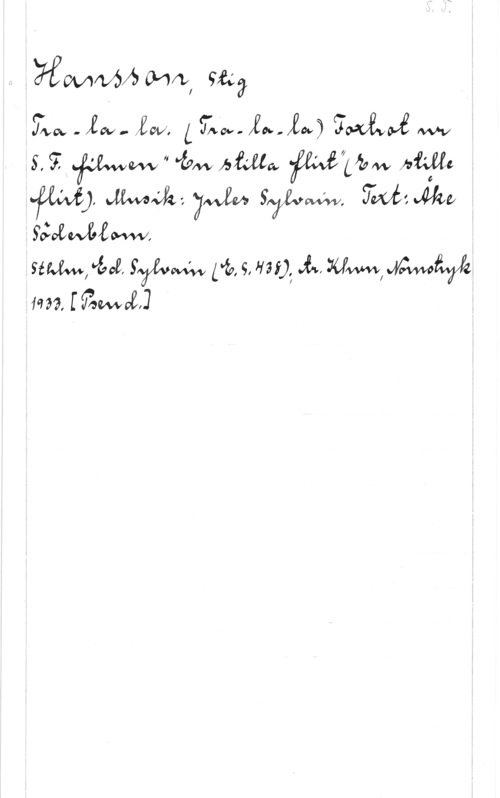 S. F.
Hansson, Stig
Tra-la-la. (Tra-la-la) Foxtrot ur
S.F. filmen "En stilla flirt" (En stille
flirt). Musik: Jules Sylvain. Text: Åke
Söderblom.
Sthlm, Ed. Sylvain (E.S. 438); tr. Khvn, Nornotryk
1933. [Pseud.]